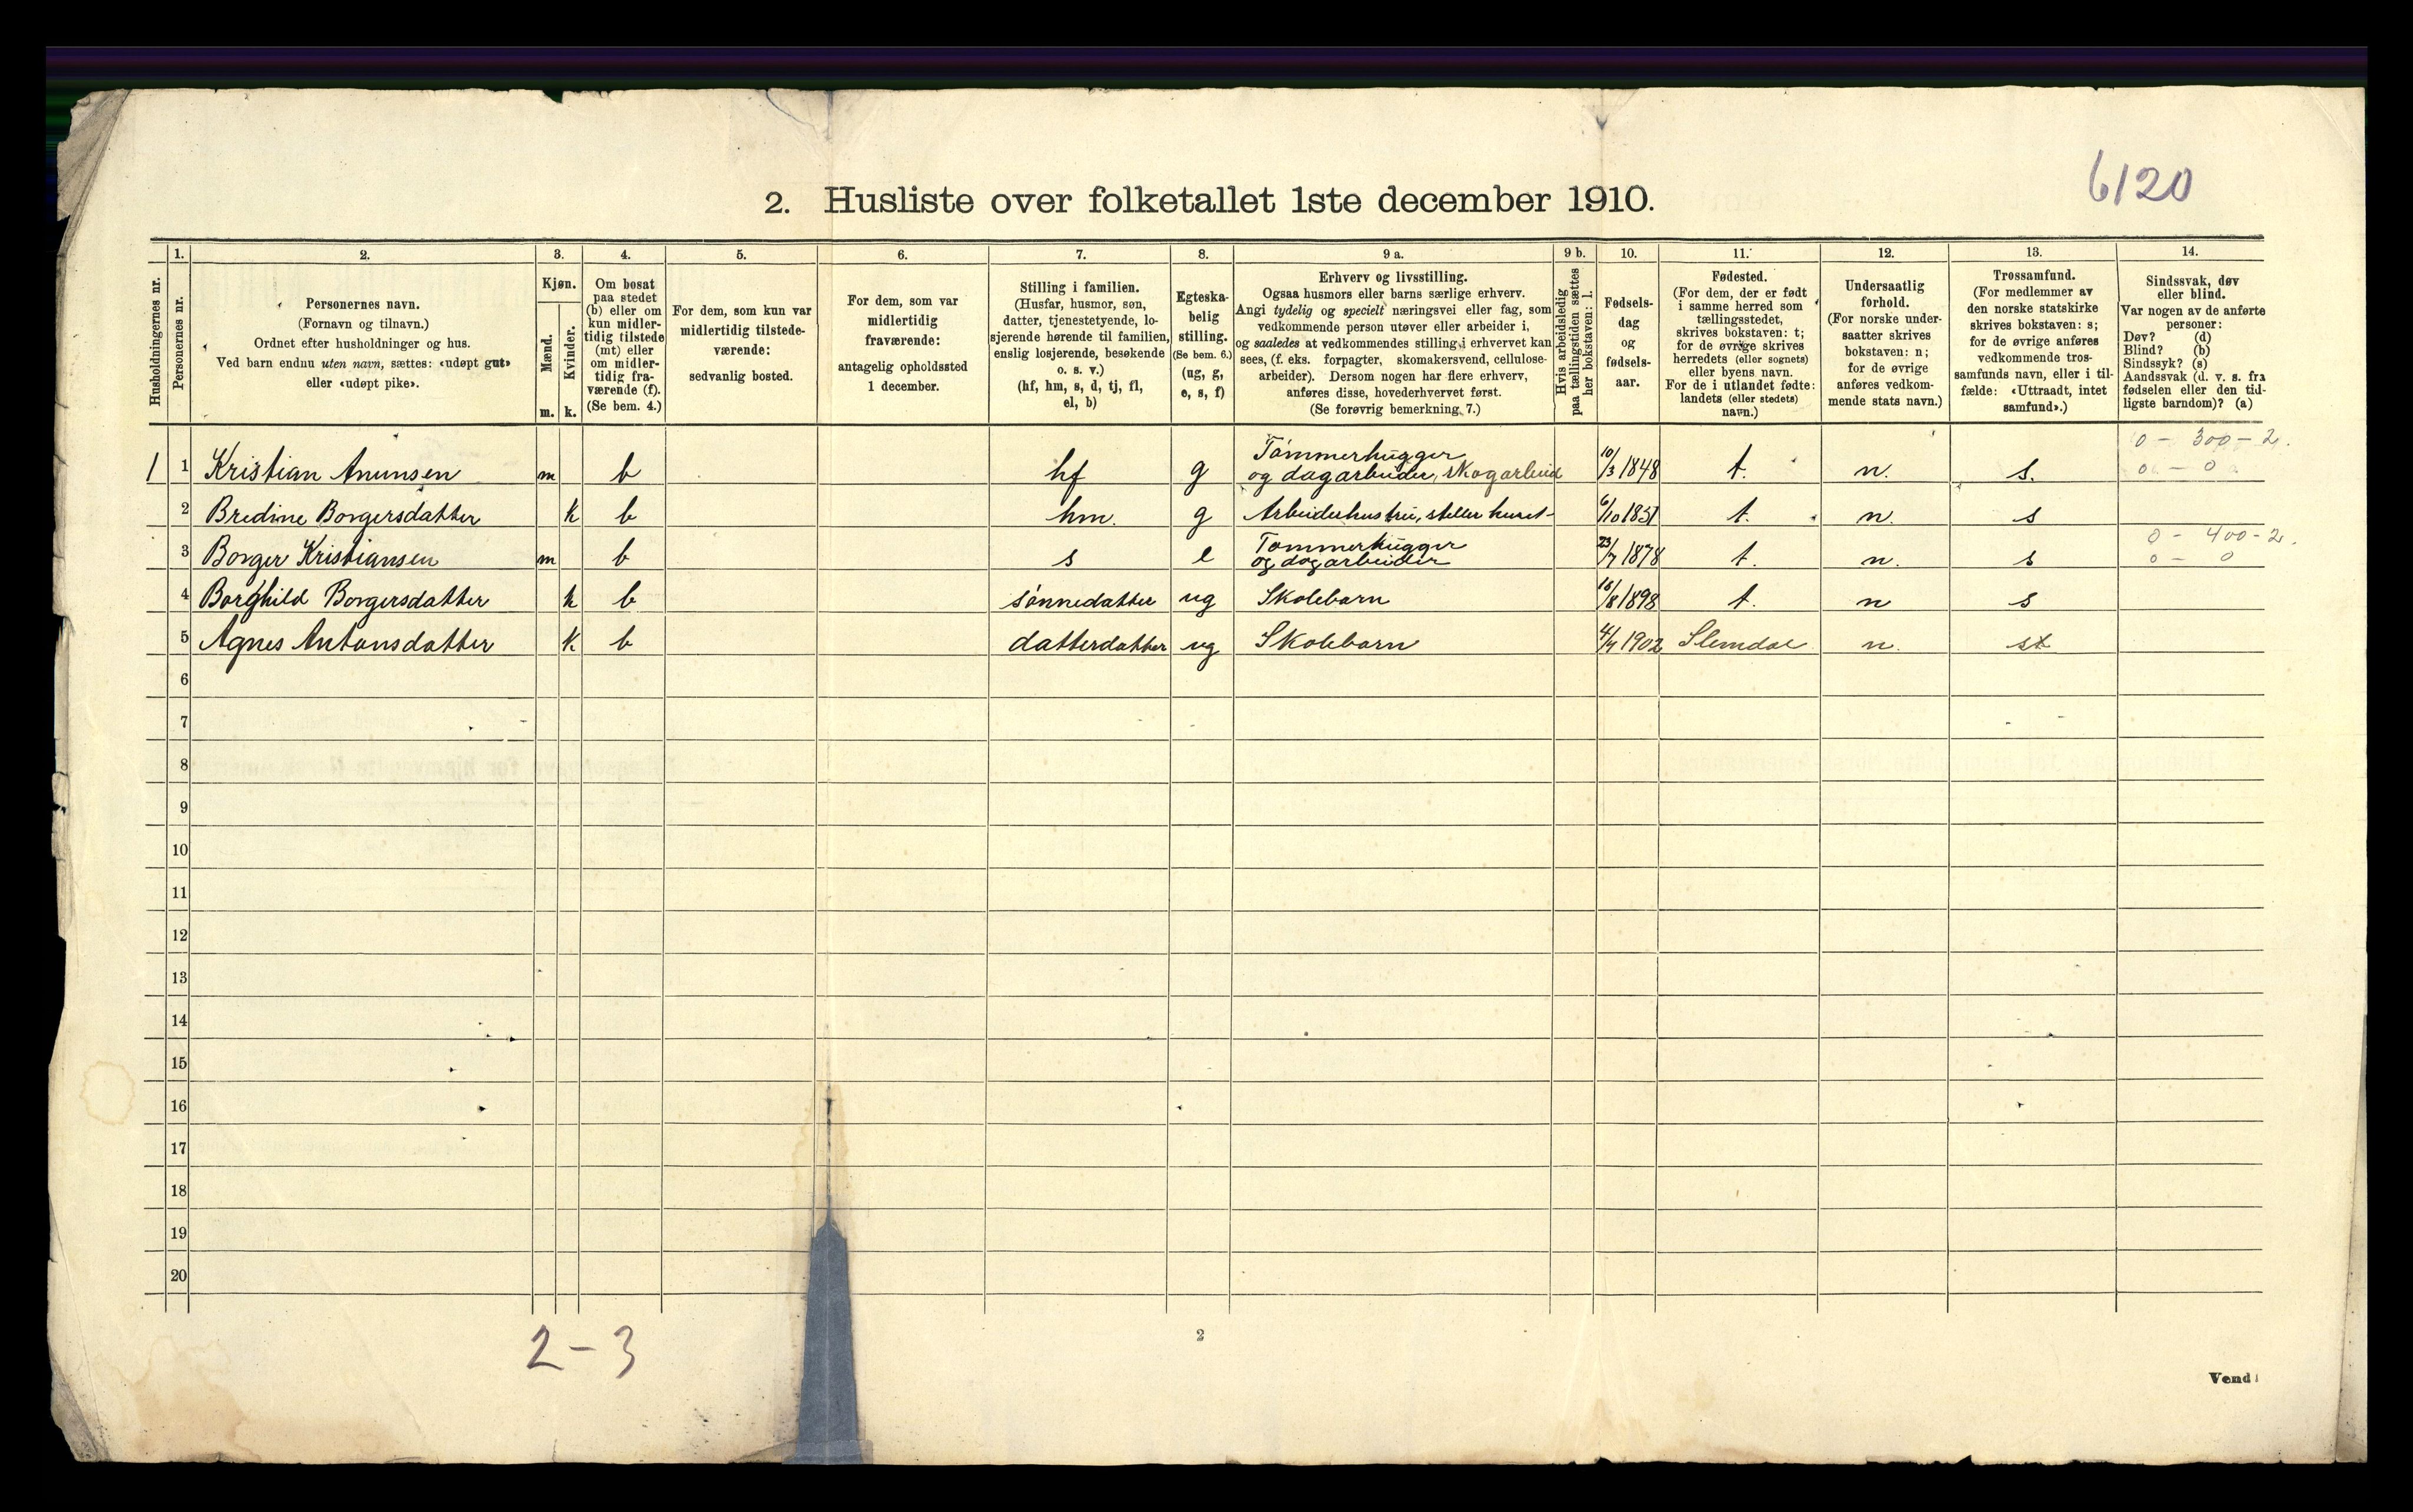 6120
2. Husliste over folketallet 1ste december 1910.
Husholdningernes nr.
1.
Personernes nr.
2.
Personernes navn.
(Fornavn og tilnavn.)
Ordnet efter husholdninger og hus.
Ved barn endnu uten navn, sættes: «udøpt gut»
eller «udøpt pike».
3.
Kjøn.
Mænd.
m.
Kvinder.
k.
4.
Om bosat
paa stedet
(b) eller om
kun midler-
tidig tilstede
(mt) eller
om midler-
tidig fra-
værende (f).
(Se bem. 4.)
5.
For dem, som kun var
midlertidig tilstede-
værende:
sedvanlig bosted.
6.
For dem, som var
midlertidig
fraværende:
antagelig opholdssted
1 december.
7.
Stilling i familien.
(Husfar, husmor, søn,
datter, tjenestetyende, lo-
sjerende hørende til familien,
enslig losjerende, besøkende
o. s. v.)
(hf, hm, s, d, tj, fl,
el, b)
8.
Egteska-
belig
stilling.
(Se bem. 6.)
(ug, g,
e, s, f)
9 a.
Erhverv og livsstilling.
Ogsaa husmors eller barns særlige erhverv.
Angi tydelig og specielt næringsvei eller fag, som
vedkommende person utøver eller arbeider i,
og saaledes at vedkommendes stilling i erhvervet kan
sees, (f. eks. forpagter, skomakersvend, cellulose-
arbeider). Dersom nogen har flere erhverv,
anføres disse, hovederhvervet først.
(Se forøvrig bemerkning 7.)
9 b.
Hvis arbeidsledig
paa tællingstiden sættes
her bokstaven: l.
10.
Fødsels-
dag
og
fødsels-
aar.
11.
Fødested.
(For dem, der er født
i samme herred som
tællingsstedet,
skrives bokstaven: t;
for de øvrige skrives
herredets (eller sognets)
eller byens navn.
For de i utlandet fødte:
landets (eller stedets)
navn.)
12.
Undersaatlig
forhold.
(For norske under-
saatter skrives
bokstaven: n;
for de øvrige
anføres vedkom-
mende stats navn.)
13.
Trossamfund.
(For medlemmer av
den norske statskirke
skrives bokstaven: s;
for de øvrige anføres
vedkommende tros-
samfunds navn, eller i til-
fælde: «Uttraadt, intet
samfund».)
14.
Sindssvak, døv
eller blind.
Var nogen av de anførte
personer:
Døv? (d)
Blind? (b)
Sindssyk? (s)
Aandssvak (d. v. s. fra
fødselen eller den tid-
ligste barndom)? (a)
0 - 300 - 2.
1 1 Kristian Anunsen m b hf g Tömmerhugger
og dagarbeider, skogarbeid 10/3 1848 t. n. s. 0 - 0
2 Bredine Borgersdatter k b hm. g Arbeiderhustru, steller huset 6/10 1851 t. n. s
3 Borger Kristiansen m b s e Tømmerhugger
og dagarbeider 23/7 1878 t. n. s 0 - 400 - 2.
0 - 0
4 Borghild Borgersdatter k b sönnedatter ug Skolebarn 18/8 1898 t. n s
5 Agnes Antonsdatter k b datterdatter ug Skolebarn 4/4 1902 Slemdal n.
6
7
8
9
10
11
12
13
14
15
16
17
18
19
20
2 - 3
2
Vend!